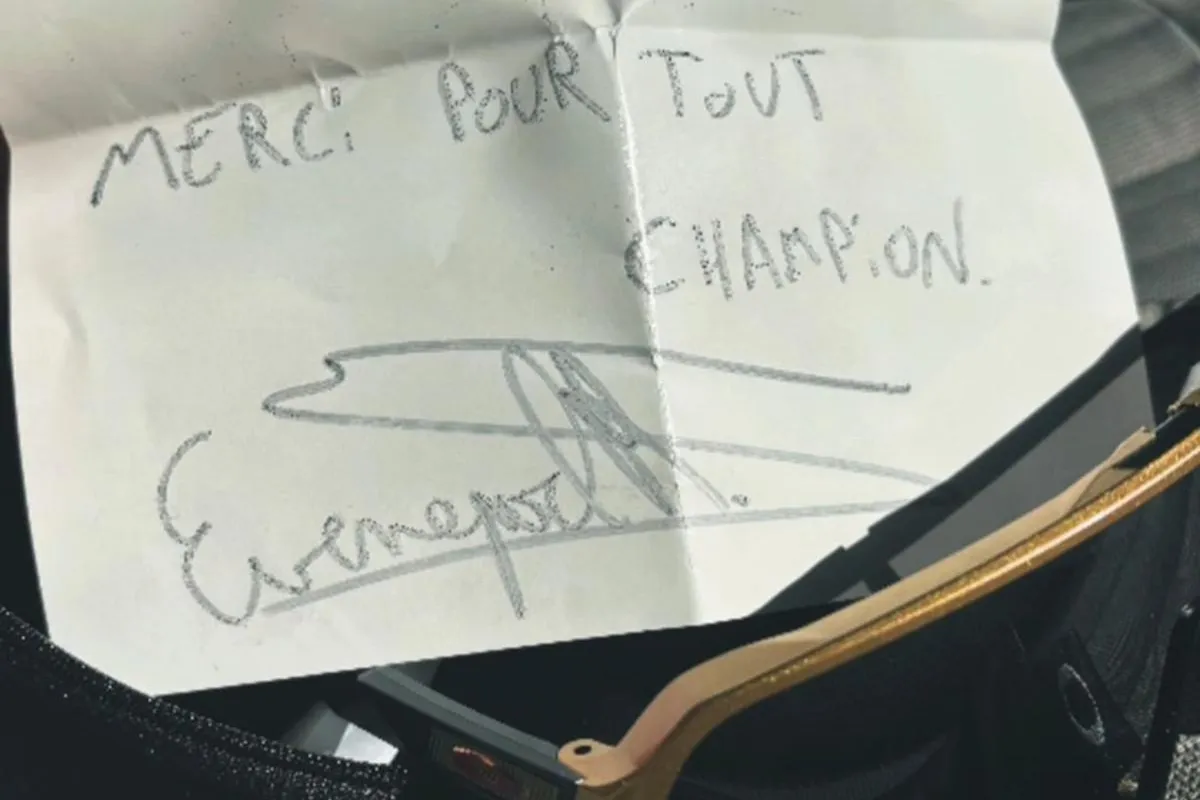 MERCi POUR TOUT
CHAMPiON.
Evenepoel